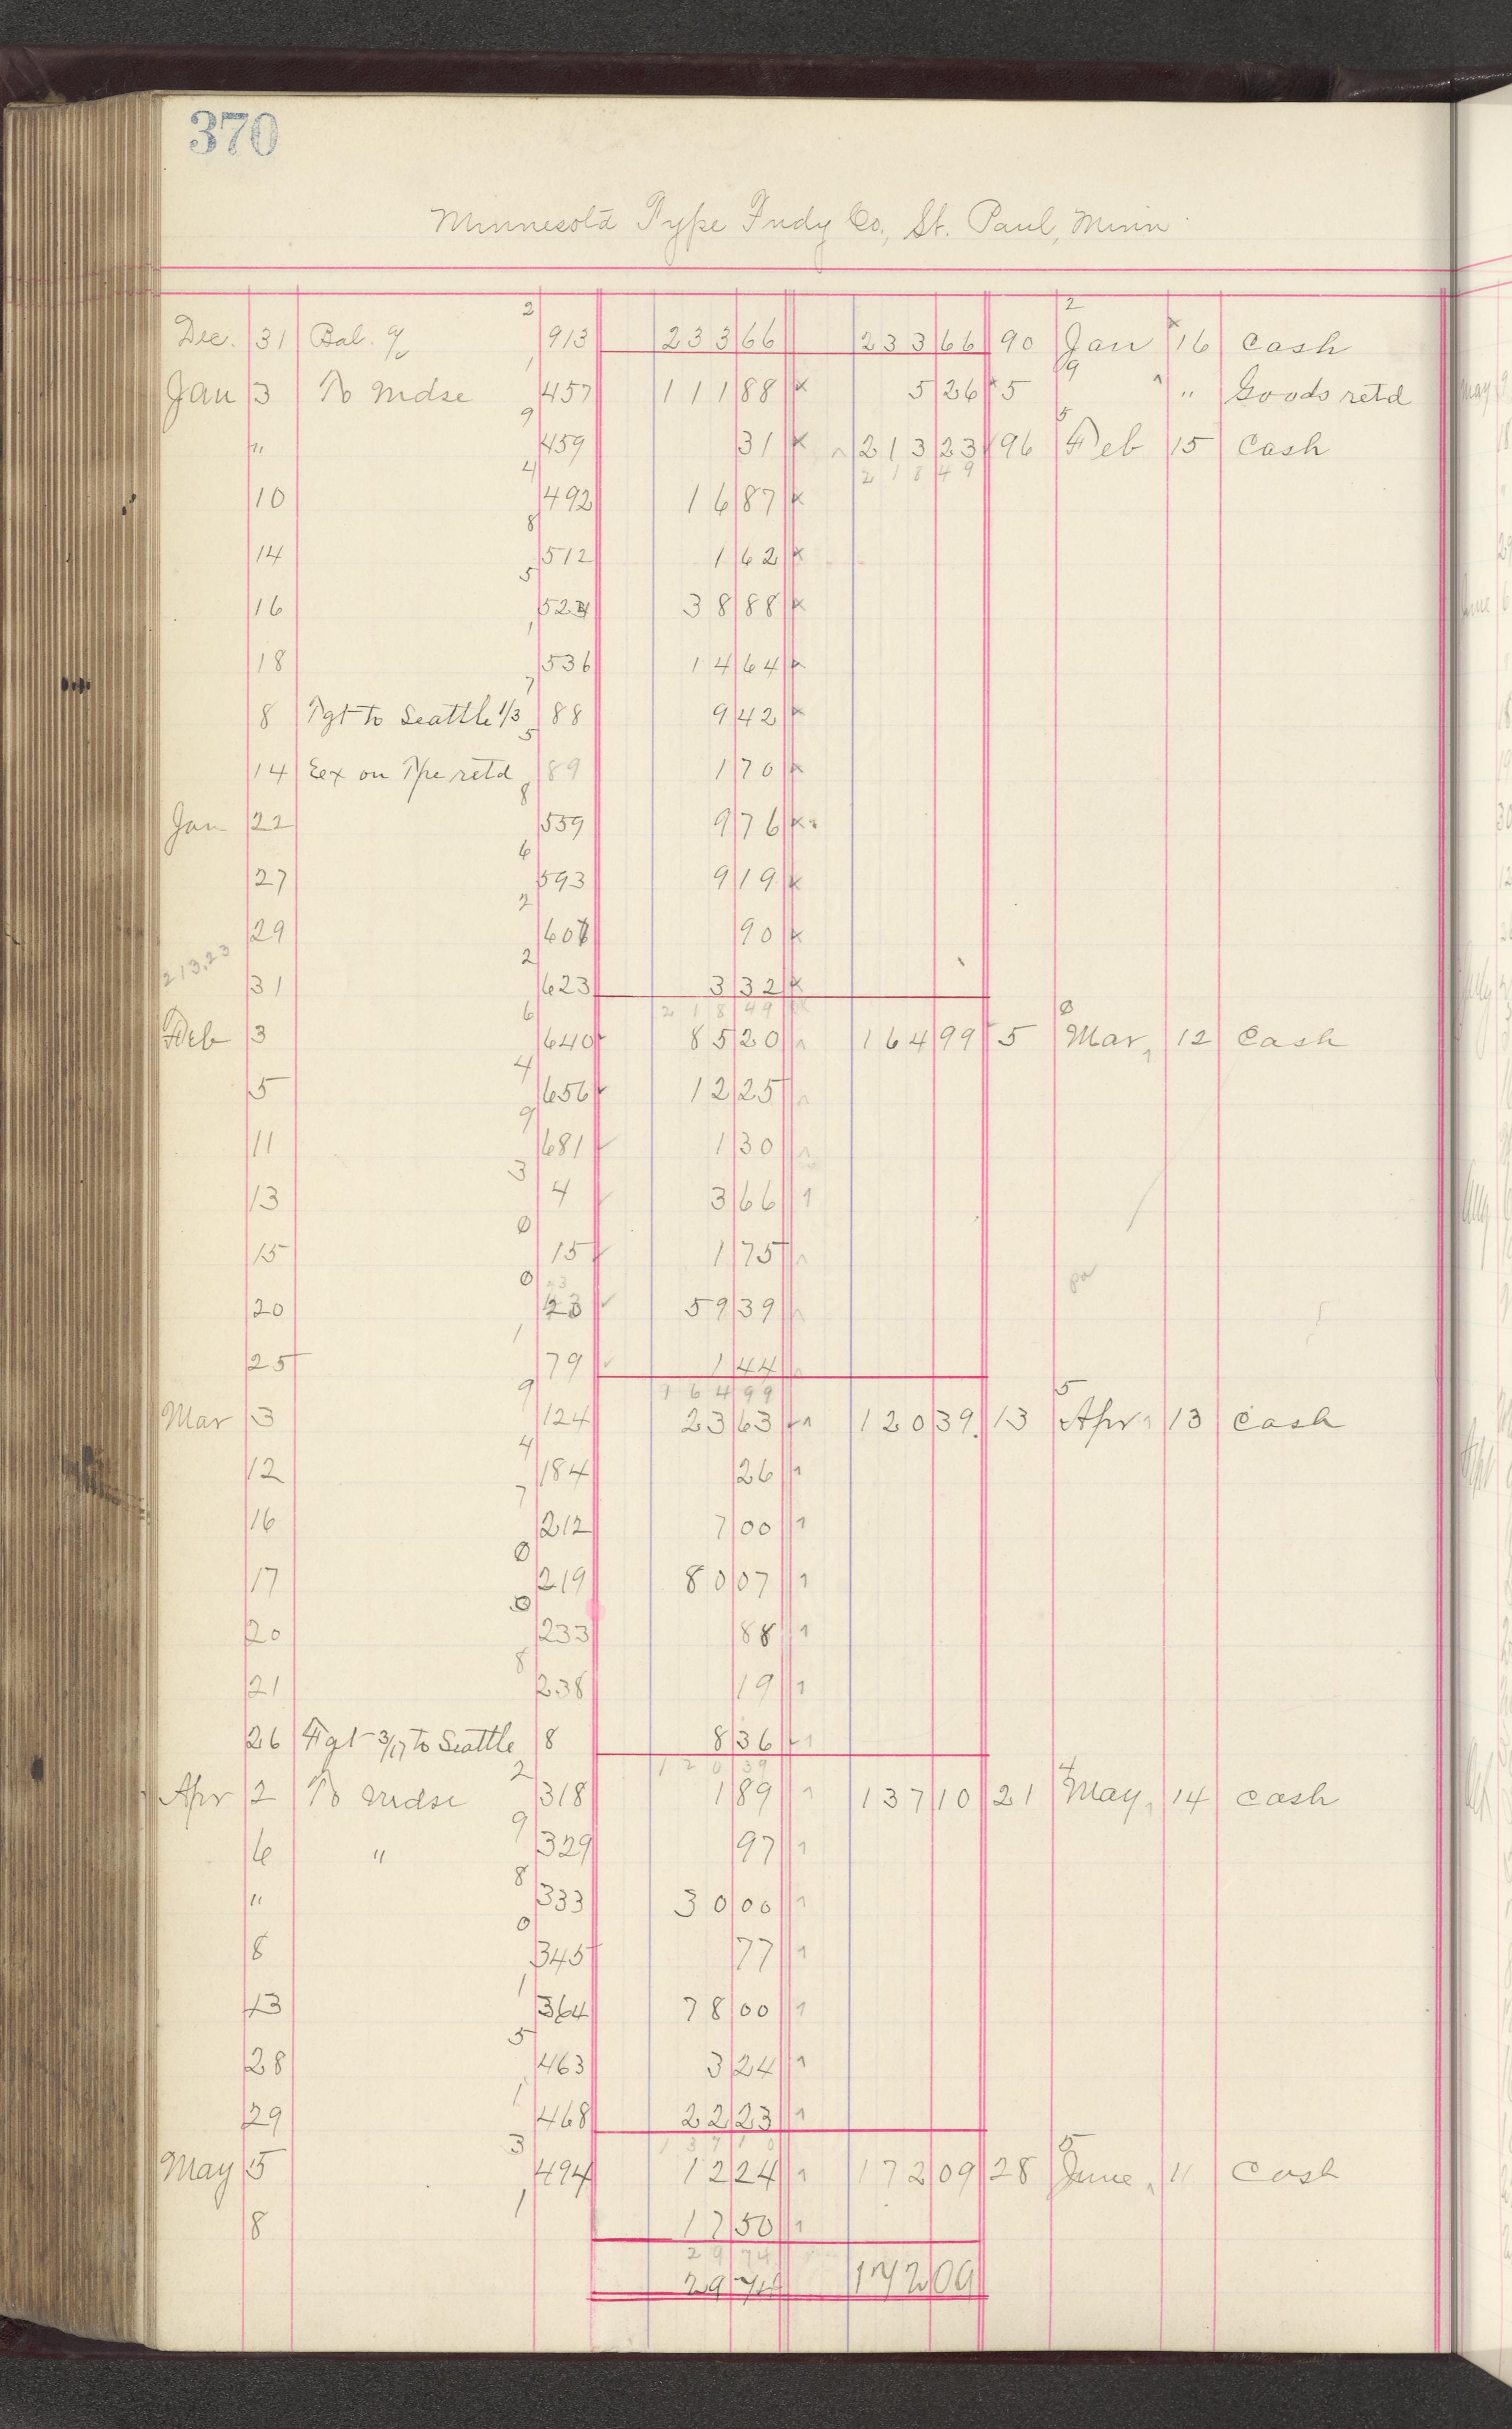 370
Minnesota Type Fndy Co., St. Paul, Minn
Dec. 31 Bal. a/c 913 233 66 233 66 90 Jan 16 Cash
Jan 3 To Mdse 457 111 88 5 26 5 " Goods retd
" 459 31 213 23 96 Feb 15 Cash
218 49
10 492 16 87
14 512 1 62
16 523 38 88
18 536 14 64
8 Fgt to Seattle 1/3 88 9 42
14 Eex on Type retd 89 1 70
Jan 22 559 9 76
27 593 9 19
29 607 90
213.23
31 623 3 32
218 49
Feb 3 640 85 20 164 99 5 Mar, 12 Cash
5 656 12 25
11 681 1 30
13 4 3 66
15 15 1 75
20 23 59 39
25 79 1 44
164 99
Mar 3 124 23 63 120 39 13 Apr 13 Cash
12 184 26
16 212 7 00
17 219 80 07
20 233 88
21 238 19
26 Fgt 3/17 to Seattle 8 8 36
120 39
Apr 2 To Mdse 318 1 89 137 10 21 May, 14 Cash
6 " 329 97
" 333 30 00
8 345 77
13 364 78 00
28 463 3 24
29 468 22 23
137 10
May 5 494 12 24 172 09 28 June, 11 Cash
8 17 50
29 74
29 74 172 09